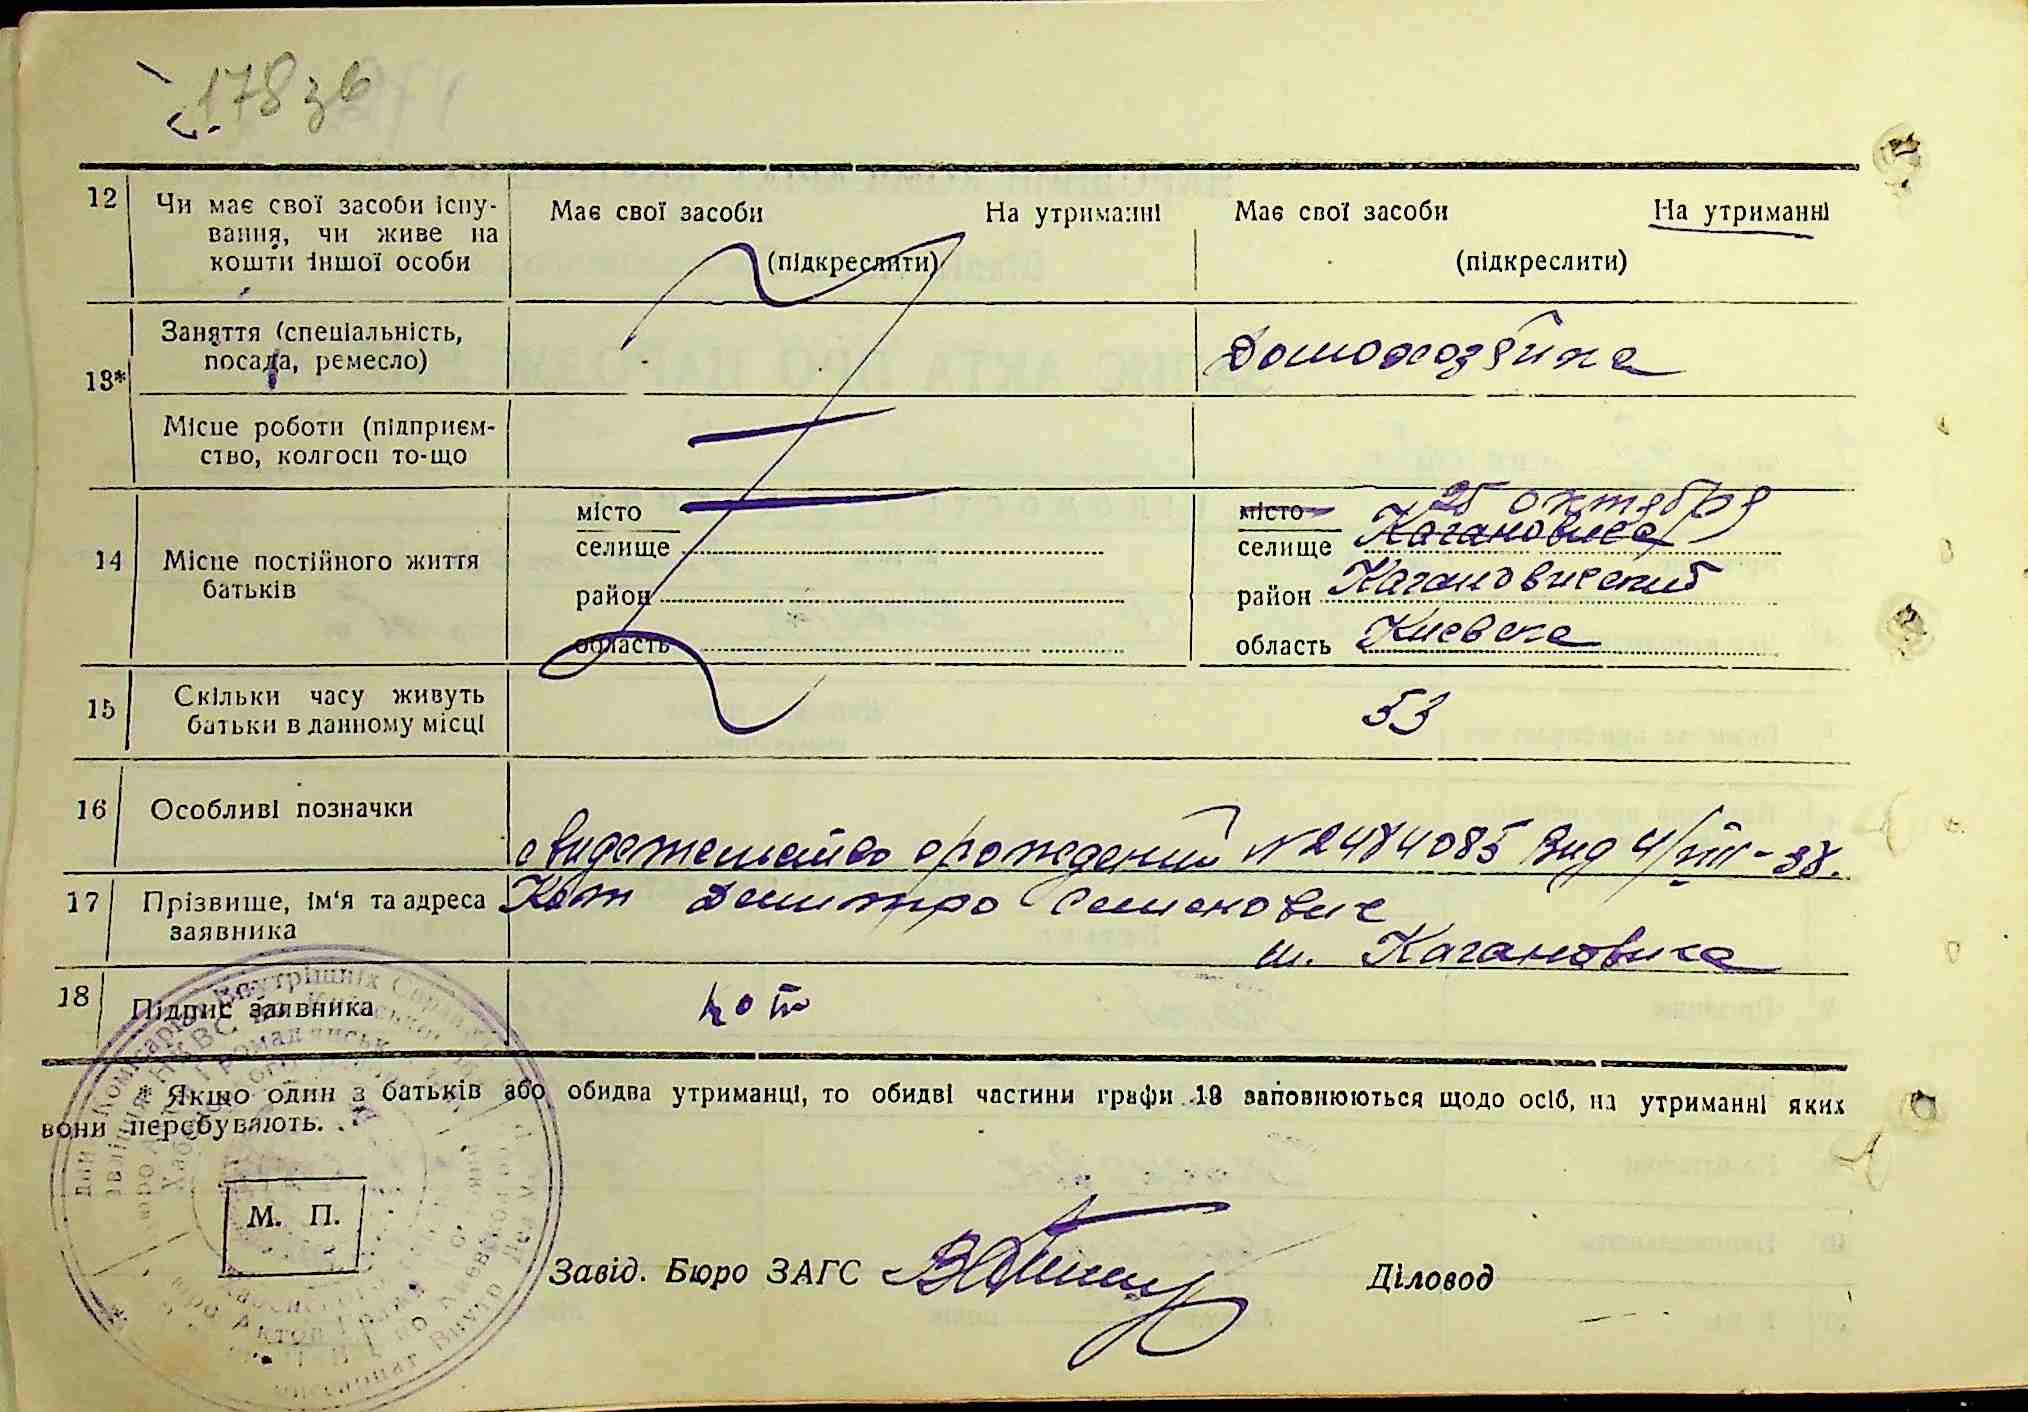 178 зв
12 Чи має свої засоби існу-
вання, чи живе на
кошти іншої особи
Має свої засоби На утриманні
(підкреслити)
Має свої засоби На утриманні
(підкреслити)
13* Заняття (спеціальність,
посада, ремесло)
Домохозяйка
Місце роботи (підприєм-
ство, колгосп то-що
14 Місце постійного життя
батьків
місто
селище
район
область
місто 25 октября
селище Кагановича
район Кагановический
область Киевска
15 Скільки часу живуть
батьки в данному місці
53
16 Особливі позначки
свидетельство о рождений N 2484085 Вид 4/VIII-38.
17 Прізвище, ім'я та адреса
заявника
Кот Дмитро Семенович
м. Кагановича
18 Підпис заявника
Кот
* Якщо один з батьків або обидва утриманці, то обидві частини графи 13 заповнюються щодо осіб, на утриманні яких
вони перебувають.
М. П.
Завід. Бюро ЗАГС
Діловод